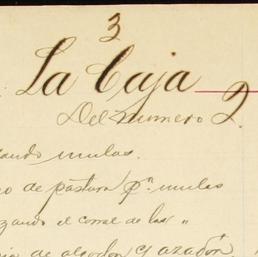 3
La Caja
Del numero 2.
ando mulas.
o de pastura pª. mulas
zando el corral de las "
de algodon y azadon,